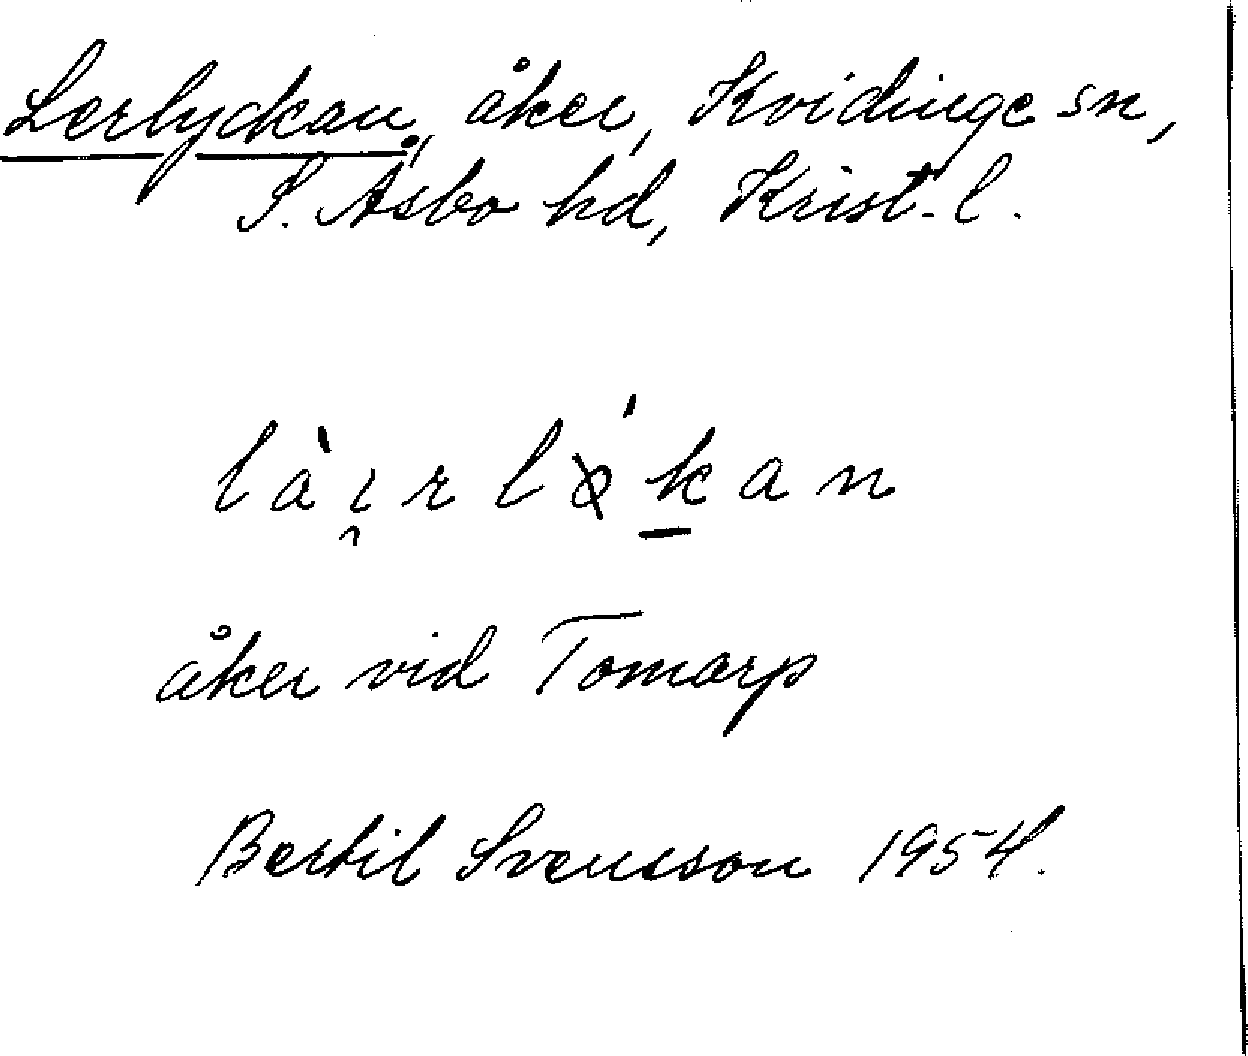 Lerlyckan, åker, Kvidinge sn,
S. Åsbo hd, Krist. l.
làı̯rlǿk̲an
åker vid Tomarp
Bertil Svensson 1954.